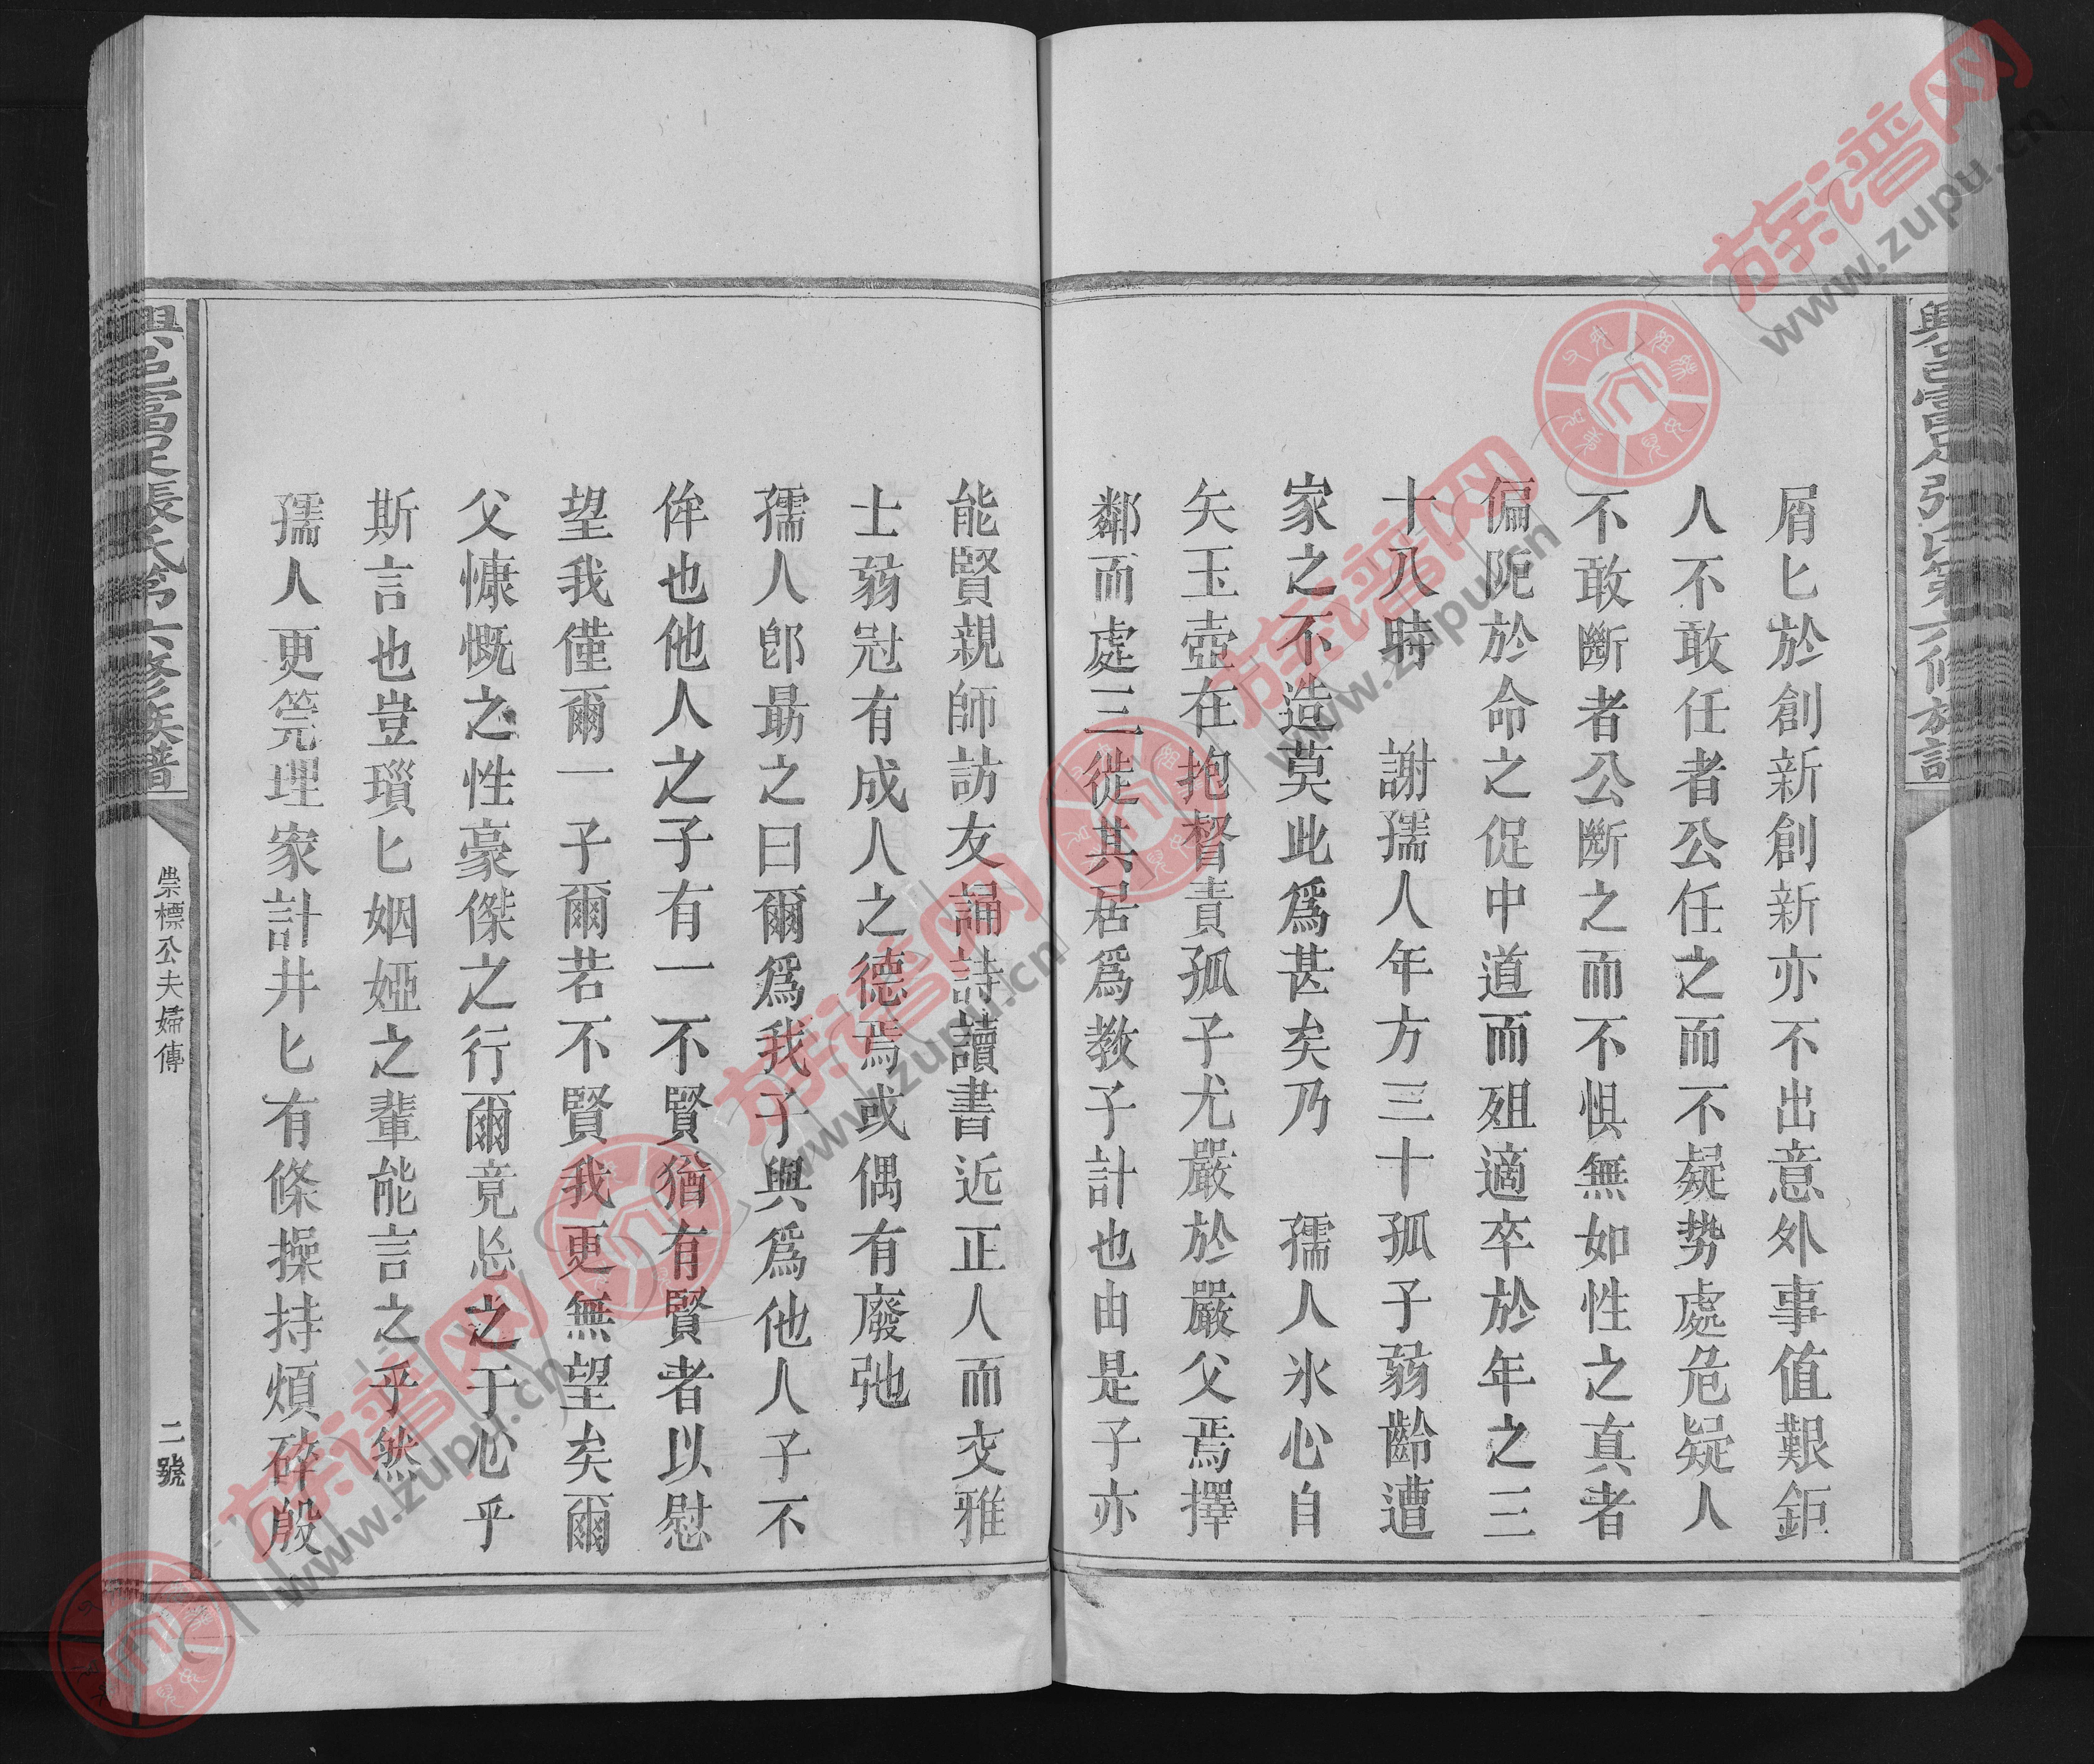 屑匕於創新創新亦不出意外事值艱鉅
人不敢任者公任之而不疑勢處危疑人
不敢斷者公斷之而不惧無如性之真者
偏阨於命之促中道而殂適卒於年之三
十八時　謝孺人年方三十孤子弱齡遭
家之不造莫此爲甚矣乃　孺人氷心自
矢玉壺在抱督責孤子尤嚴於嚴父焉擇
鄰而處三徙其居爲教子計也由是子亦
能賢親師訪友誦詩讀書近正人而交雅
士弱冠有成人之德焉或偶有廢弛
孺人即勗之曰爾爲我子與爲他人子不
侔也他人之子有一不賢猶有賢者以慰
望我僅爾一子爾若不賢我更無望矣爾
父慷慨之性豪傑之行爾竟忘之于心乎
斯言也豈瑣匕姻婭之輩能言之乎然
孺人更筦理家計井匕有條操持煩碎殷
興邑富足張氏第六修族譜
崇標公夫婦傳
二號
族谱网
www.zupu.cn